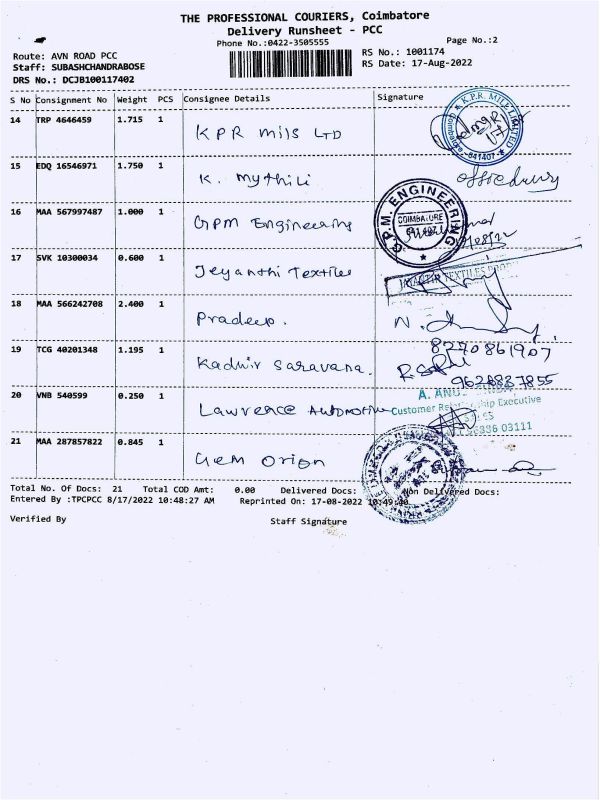 THE PROFESSIONAL COURIERS, Coimbatore
Delivery Runsheet - PCC
Phone No.:0422-3505555 Page No.:2
Route: AVN ROAD PCC RS No.: 1001174
Staff: SUBASHCHANDRABOSE RS Date: 17-Aug-2022
DRS No.: DCJB100117402
S No Consignment No Weight PCS Consignee Details Signature
14 TRP 4646459 1.715 1 KPR Mils LTD
K.P.R. MILL LIMITED
641407
15 EDQ 16546971 1.750 1 K. Mythili
16 MAA 567997487 1.000 1 GPM Engineering
G.P.M. ENGINEERING
COIMBATORE
17 SVK 10300034 0.600 1 Jeyanthi Textiles
18 MAA 566242708 2.400 1 Pradeep.
8270861907
19 TCG 40201348 1.195 1 Kadhir Saravana.
9626837855
20 VNB 540599 0.250 1 Lawrence Automotive
Customer Relationship Executive
03111
21 MAA 287857822 0.845 1 Gem Orion
Total No. Of Docs: 21 Total COD Amt: 0.00 Delivered Docs: Non Delivered Docs:
Entered By :TPCPCC 8/17/2022 10:48:27 AM Reprinted On: 17-08-2022 10:49:40
Verified By Staff Signature